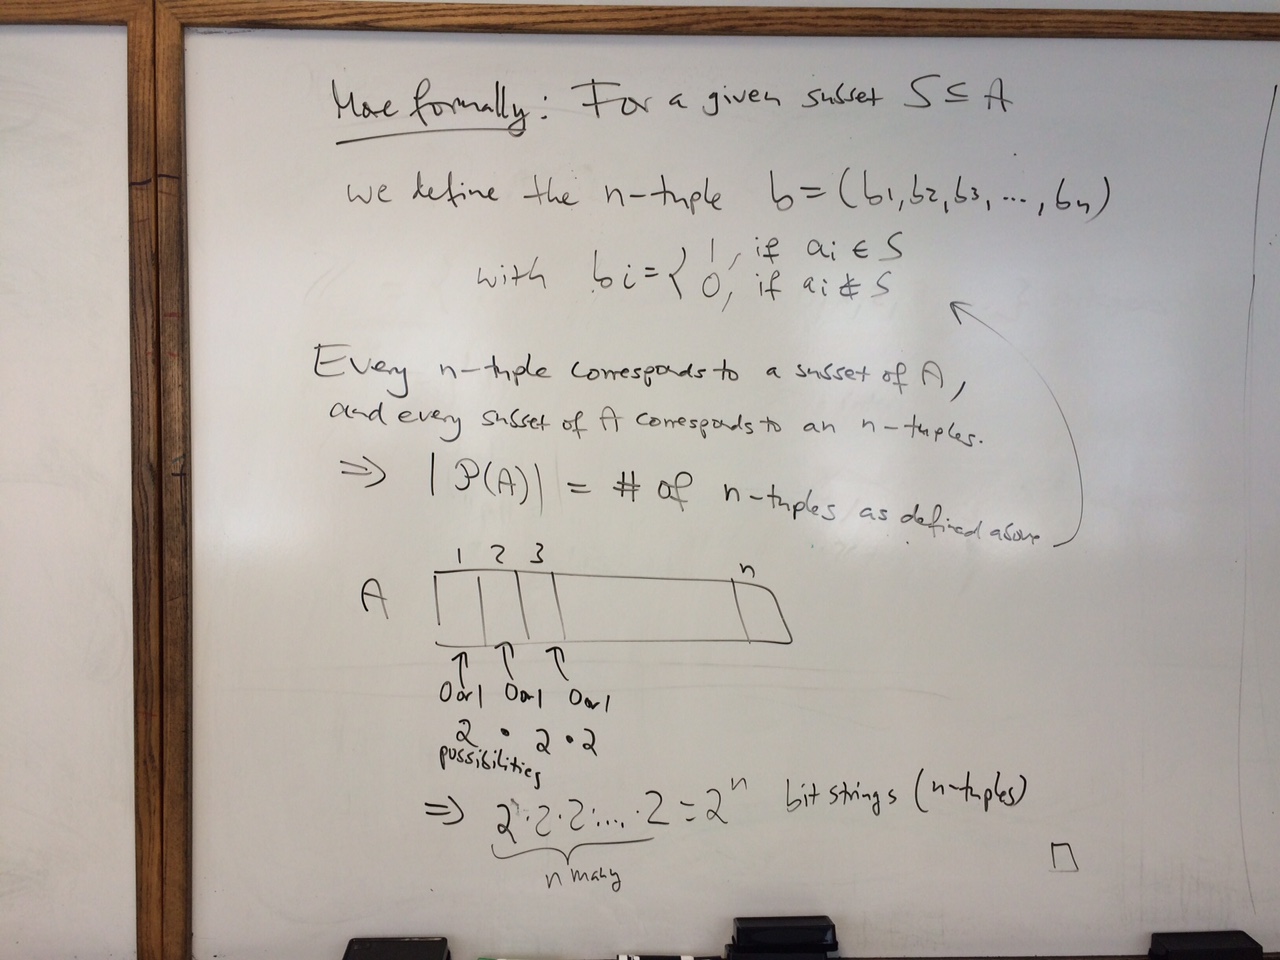 More formally: For a given subset S ⊆ A
we define the n-tuple b=(b1,b2,b3,...,bn)
with bi={ 1, if ai ∈ S
0, if ai ∉ S
Every n-tuple corresponds to a subset of A,
and every subset of A corresponds to an n-tuples.
⇒ |P(A)| = # of n-tuples as defined above
1 2 3 n
A
↑ ↑ ↑
0or1 0or1 0or1
2 • 2 • 2
possibilities
⇒ 2·2·2·...·2 = 2ⁿ bit strings (n-tuples)
n many
□